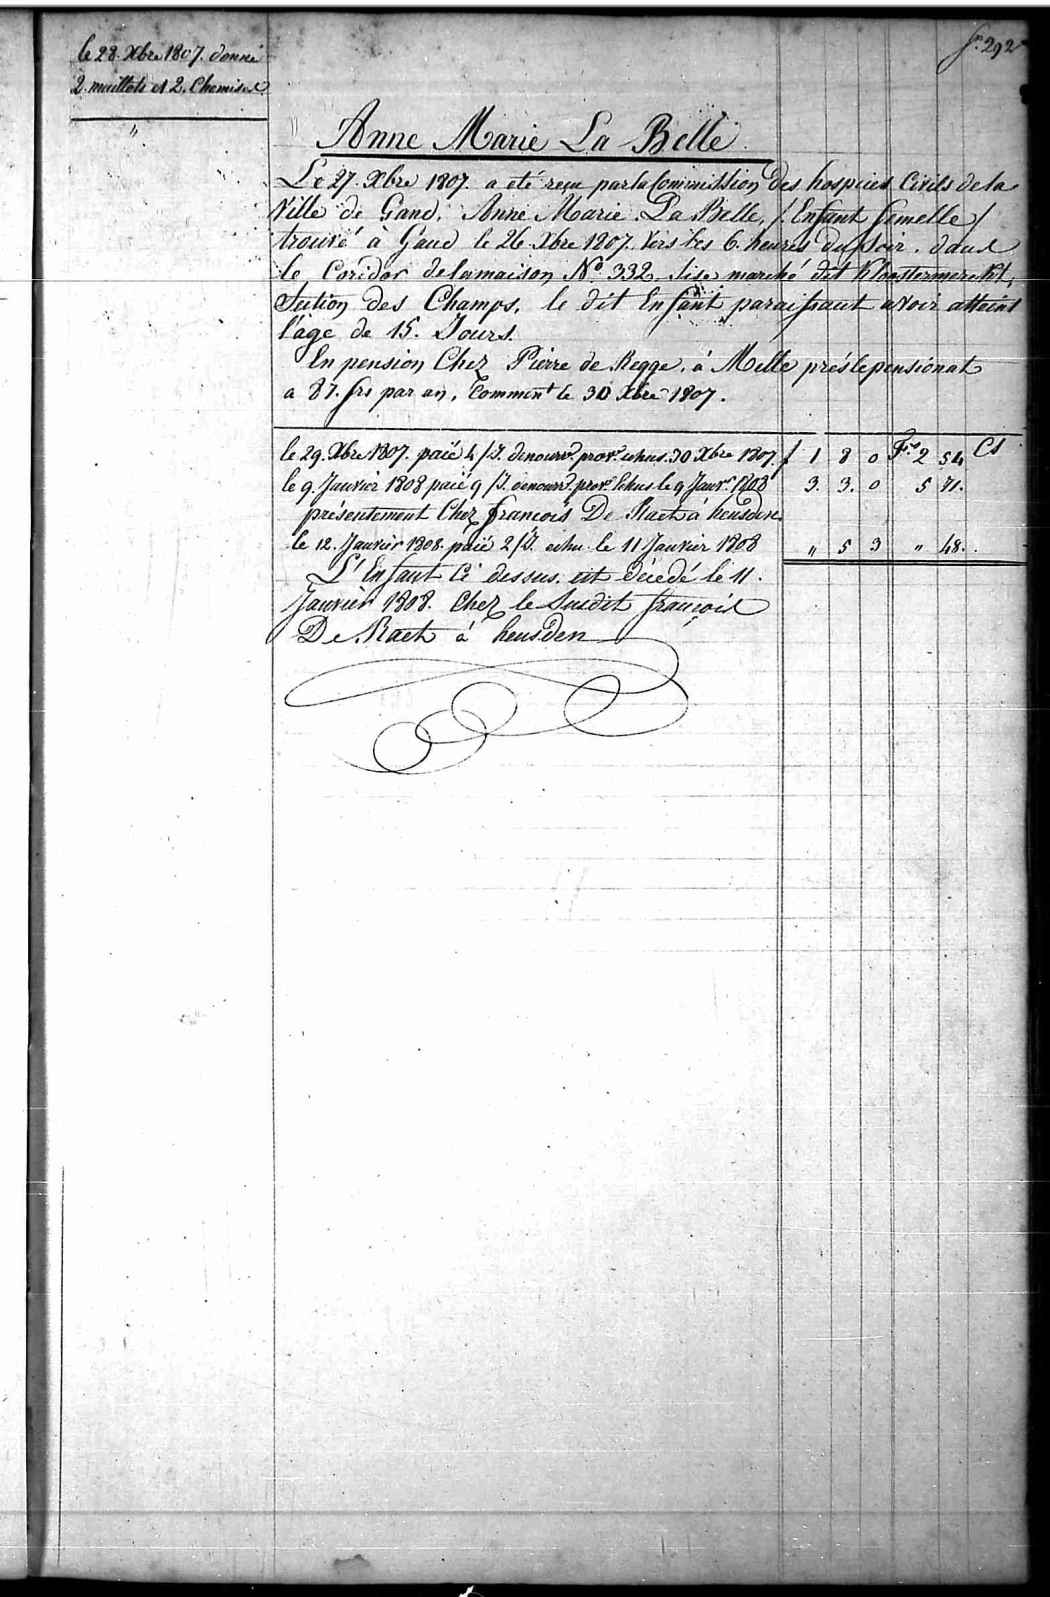 fo. 292
le 28. Xbre 1807. donné
2. maillots et 2. Chemises.
"
Anne Marie La Belle
Le 27. Xbre 1807. a eté reçu par la Commission des hospices Civils de la
Ville de Gand, Anne Marie La Belle, /: Enfant femelle /
trouvé à Gand le 26. Xbre 1807. vers les 6. heures du soir. dans
le Coridor de la maison No. 332. sise marché dit Kloostermerckt,
Section des Champs, le dit Enfant paraissant avoir atteint
l'age de 15. Jours.
En pension Chez Pierre de Regge, á Melle prés le pensionat
a 87. frs par an, Comment. le 30 Xbre 1807.
le 29. Xbre 1807. paié 4/J. de nourre. provre. echus. 30 Xbre 1807 f 1 8 0 Frs 2 54 Cs
le 9. Janvier 1808 paié 9/J. de nourre. provre. Echus le 9 Janvr. 1808 3. 3. 0 5 71.
présentement Chez francois De Raet à heusden
le 12. Janvier 1808. paié 2/J. echu. le 11 Janvier 1808 " 5 3 " 48.
L'Enfant Ci dessus. est décedé le 11.
Janvier 1808. Chez le susdit françois
De Raet á heusden